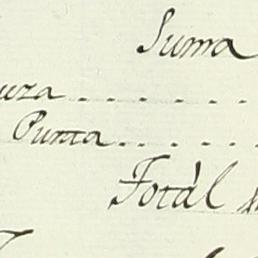 Suma
uza . . . . . .
Punta . . . . .
Totàl